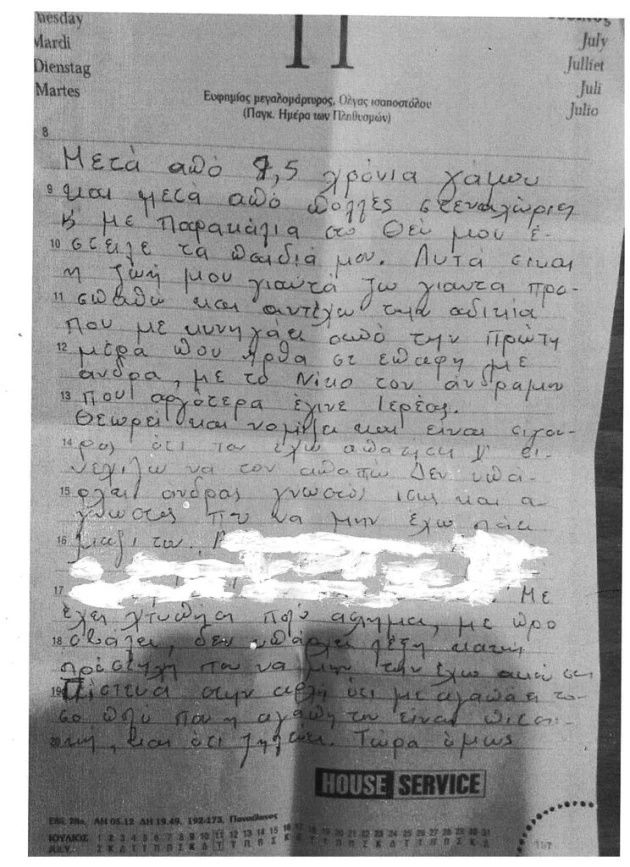 Mardi
Dienstag
Martes
11
July
Julliet
Juli
Julio
Ευφημίας μεγαλομάρτυρος, Όλγας ισαποστόλου
(Παγκ. Ημέρα των Πληθυσμών)
8
Μετά από 9,5 χρόνια γάμου
9 και μετά από πολλές στεναχώριες
με παρακάλια στο Θεό μου έ-
10 στειλε τα παιδιά μου. Αυτά είναι
η ζωή μου γιαυτά ζω γιαυτα προ-
11 σπαθώ και αντέχω την αδικία
που με κυνηγάει από την πρώτη
12 μέρα που ήρθα σε επαφη με
άνδρα, με το Νίκο τον άνδραμου
13 που αργότερα έγινε Ιερέας.
Θεωρεί και νομίζει και είναι σιγου-
14 ρος ότι τον έχω απατήσει
να τον απατώ Δεν υπά-
15 ρχει άνδρας γνωστός ισως και α-
γνωστος που να μην έχω πάει
16 μαζί του.
17 Με
έχει χτυπήσει πολύ άσχημα, με προ
18 σβάλει, δεν υπάρχει λέξη κακή
που να μην την έχω ακούσει
19 Πίστευα στην αρχή ότι με αγαπάει το-
σο πολύ που η αγάπη του είναι
20 και ότι ζηλεύει. Τώρα όμως
HOUSE SERVICE
ΙΟΥΛΙΟΣ 1 2 3 4 5 6 7 8 9 10 11 12 13 14 15 16 17 18 19 20 21 22 23 24 25 26 27 28 29 30 31
JULY